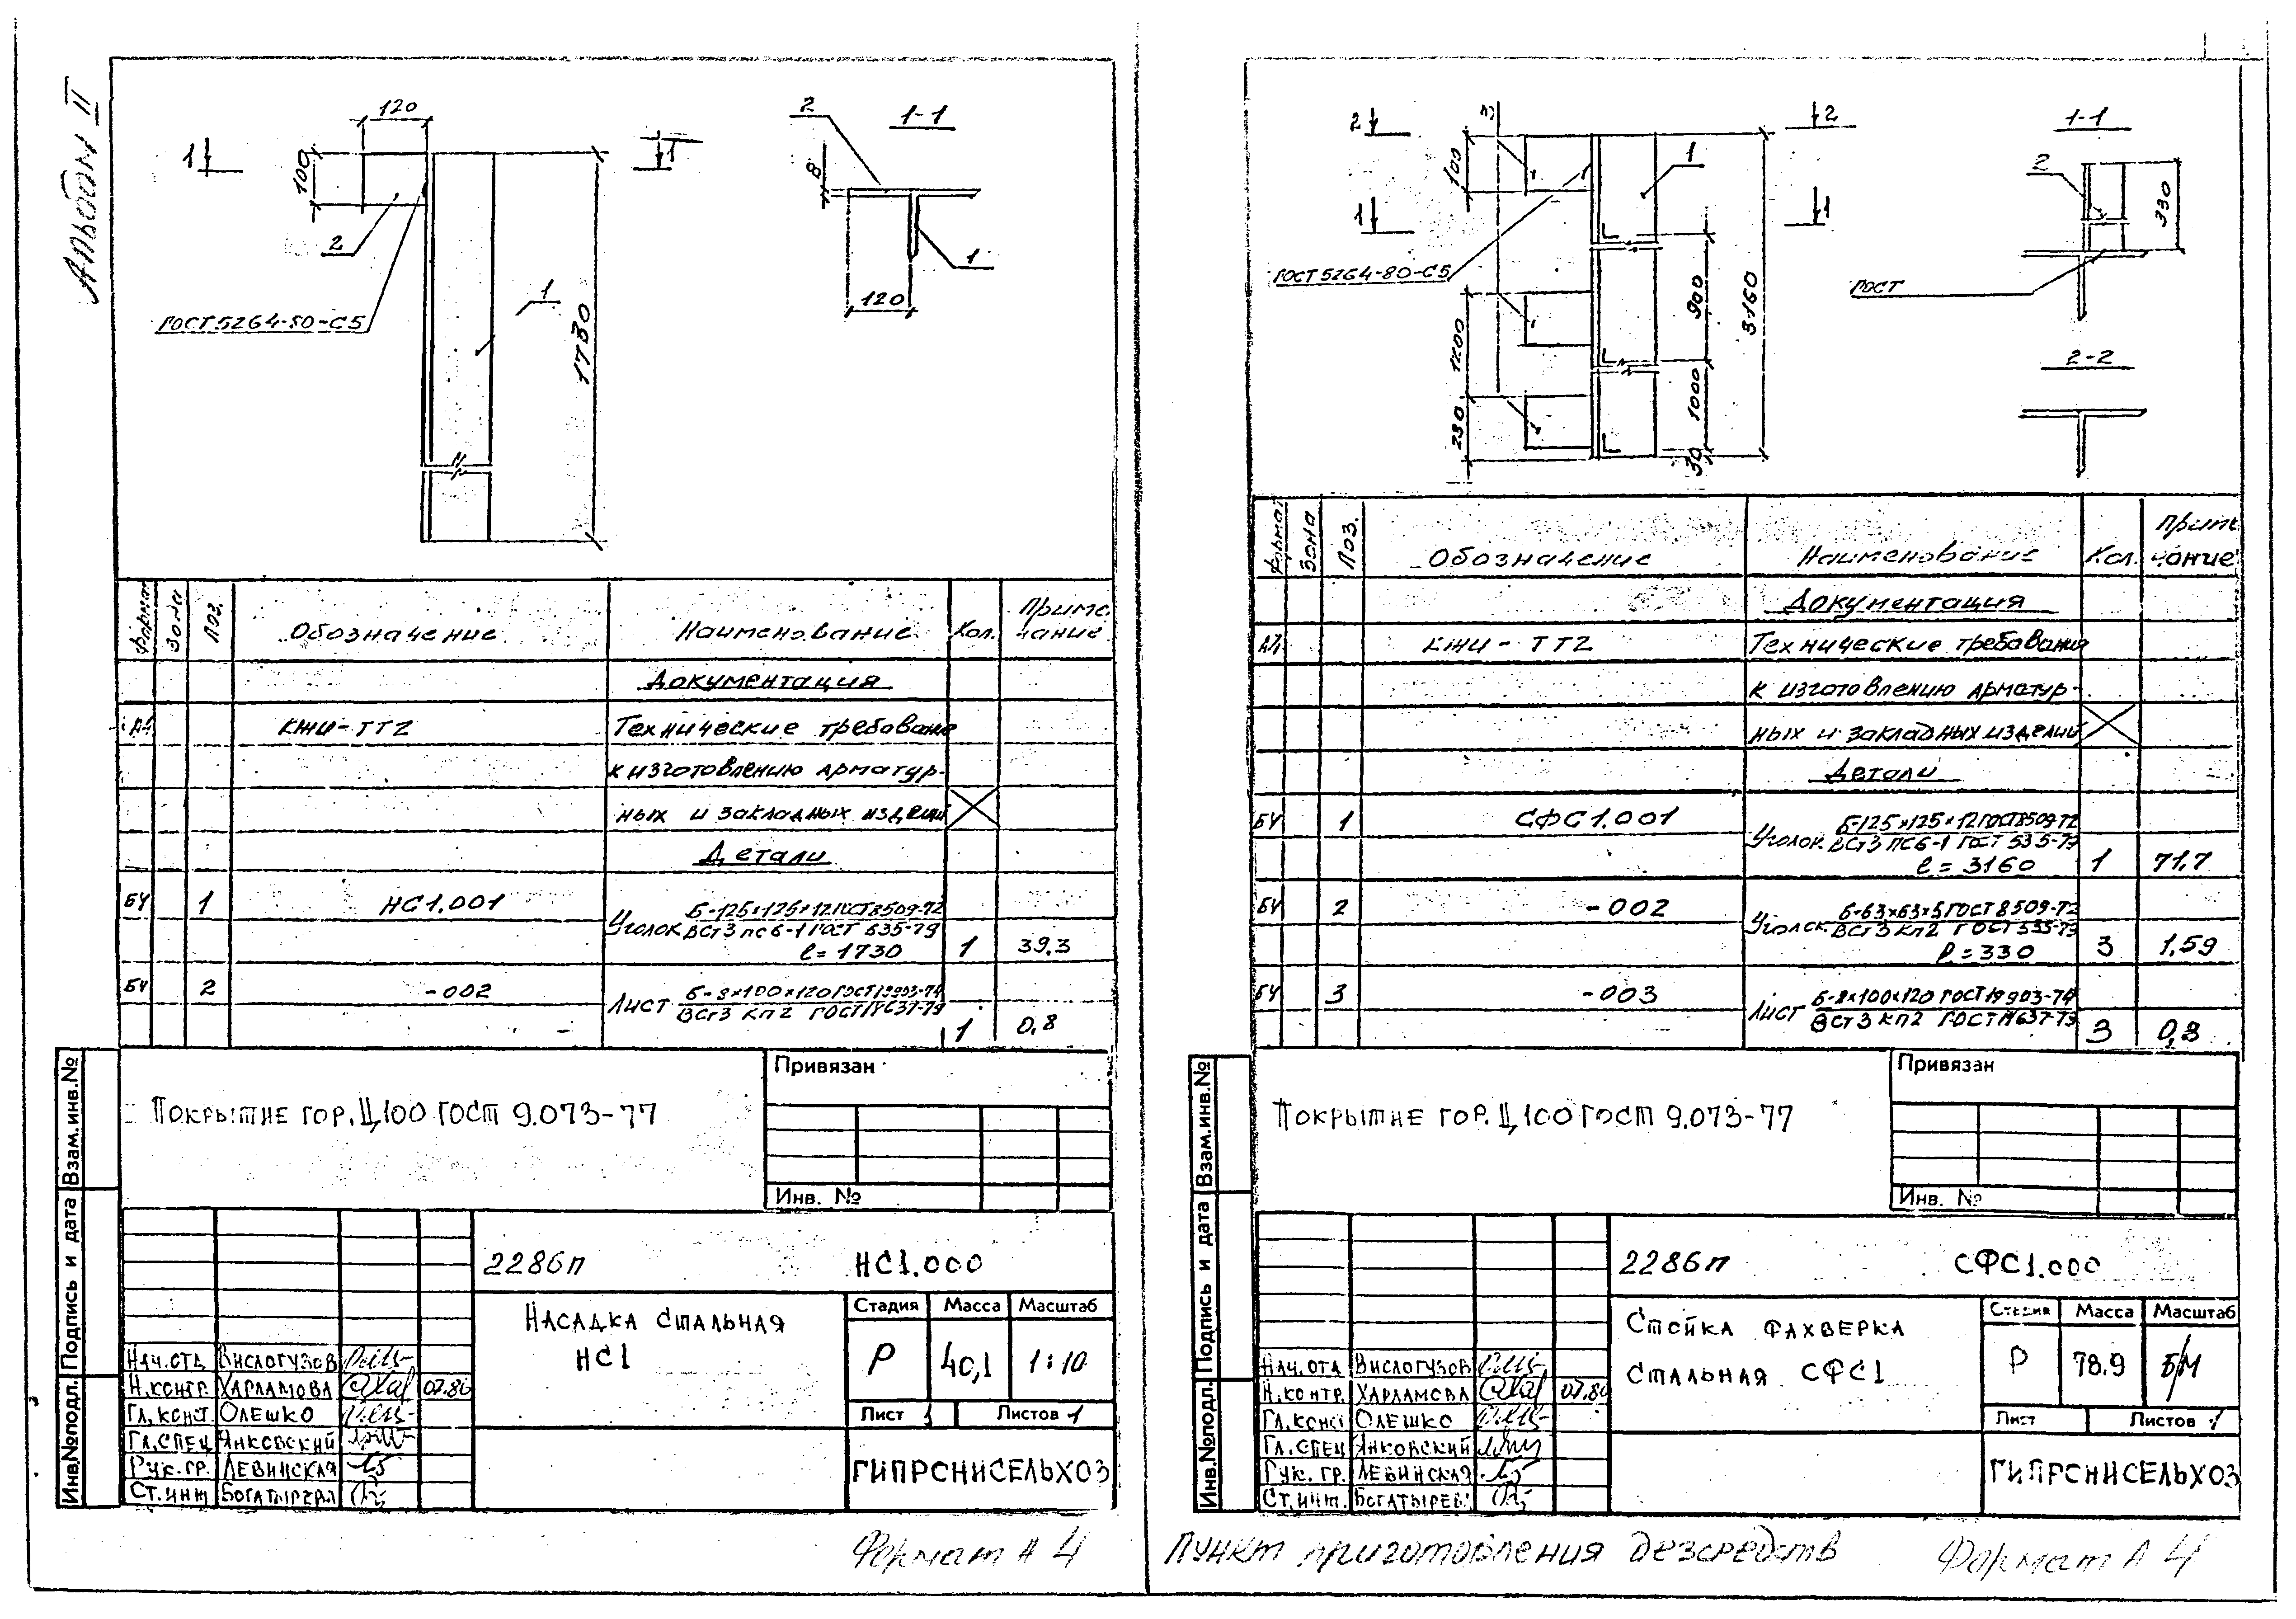 Альбом II
120
100
1
1
2
1
ГОСТ 5264-80-С5
1730
1-1
2
8
1
120
Формат
Зона
Поз.
Обозначение
Наименование
Кол.
Приме
чание
Документация
А4
КЖИ-ТТ2
Технические требован
к изготовлению арматур-
ных и закладных изделий
Детали
БЧ 1 НС1.001
Уголок Б-125×125×12 ГОСТ 8509-72
ВСт3 пс6-1 ГОСТ 535-79
ℓ=1730 1 39,3
БЧ 2 -002
Лист Б-8×100×120 ГОСТ 19903-74
ВСт3 кп2 ГОСТ 14637-79
1 0,8
Покрытие гор. Ц100 ГОСТ 9.073-77
Привязан
Инв. №
Взам.инв.№
Подпись и дата
Инв.№подл.
2286п НС1.000
Насадка стальная
НС1
Стадия Масса Масштаб
Р 40,1 1:10
Лист 1 Листов 1
ГИПРОНИСЕЛЬХОЗ
Нач.отд. Вислогузов
Н.контр. Харламова 07.86
Гл.конст. Олешко
Гл.спец Янковский
Рук.гр. Левинская
Ст.инж Богатырева
Формат А4
2 2
3
100
1
1 1
ГОСТ 5264-80-С5
1200
230
900
1000
30
3160
1-1
2
330
ГОСТ
2-2
Формат
Зона
Поз.
Обозначение
Наименование
Кол.
Приме
чание
Документация
А4 КЖИ-ТТ2 Технические требования
к изготовлению арматур-
ных и закладных изделий
Детали
БЧ 1 СФС1.001
Уголок Б-125×125×12 ГОСТ 8509-72
ВСт3 пс6-1 ГОСТ 535-79
ℓ=3160 1 71,7
БЧ 2 -002
Уголок Б-63×63×5 ГОСТ 8509-72
ВСт3 кп2 ГОСТ 535-79
ℓ=330 3 1,59
БЧ 3 -003
Лист Б-8×100×120 ГОСТ 19903-74
ВСт3 кп2 ГОСТ 14637-79
3 0,8
Покрытие гор. Ц100 ГОСТ 9.073-77
Привязан
Инв. №
Взам.инв.№
Подпись и дата
Инв.№подл.
2286п СФС1.000
Стойка фахверка
стальная СФС1
Стадия Масса Масштаб
Р 78.9 б/м
Лист Листов 1
ГИПРОНИСЕЛЬХОЗ
Нач.отд. Вислогузов
Н.контр. Харламова 07.86
Гл.конст Олешко
Гл.спец Янковский
Рук.гр. Левинская
Ст.инж. Богатырева
Пункт приготовления дезсредств
Формат А4